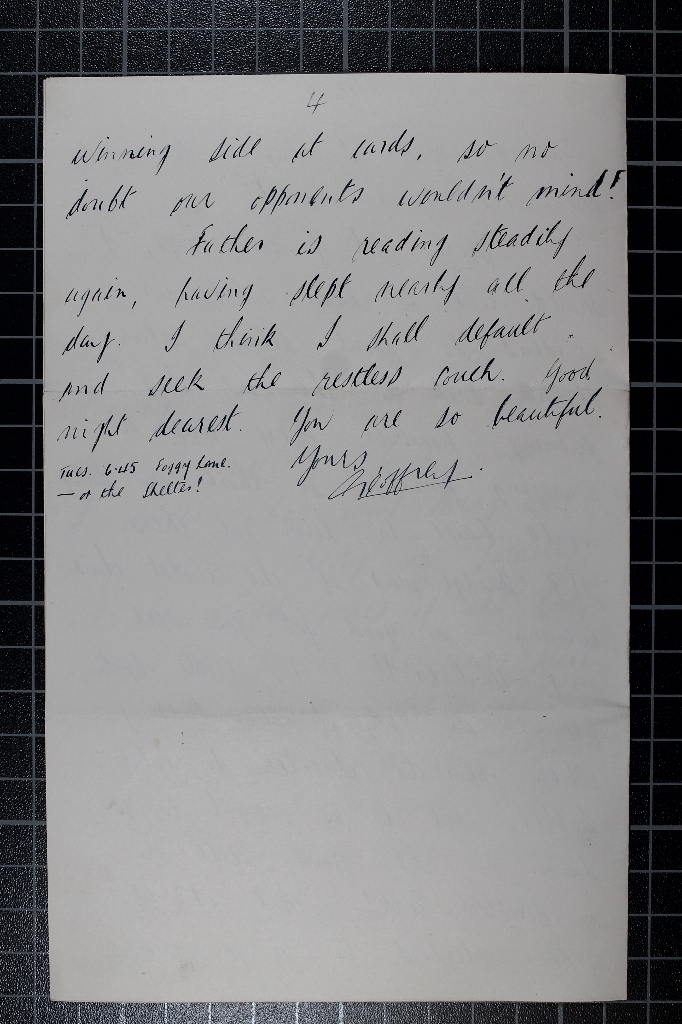 4
winning side at cards, so no
doubt our opponents wouldn't mind!
Father is reading steadily
again, having slept nearly all the
day. I think I shall default
and seek the restless couch. Good
night dearest. You are so beautiful.
Yours
Geoffrey.
Tues. 6.45 Foggy Lane.
— or the Shelter!